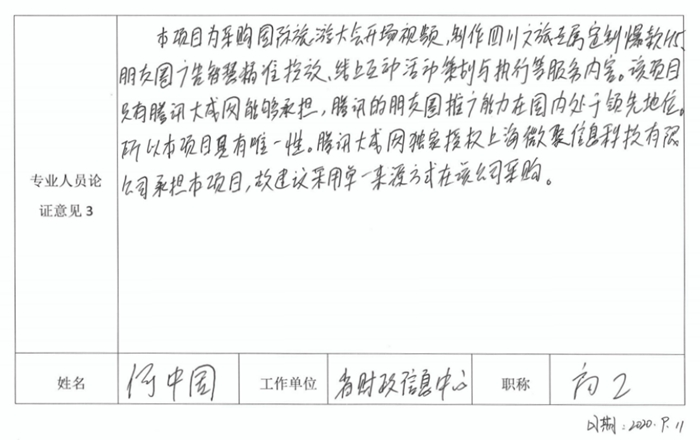 本项目为采购国际旅游大会开场视频,制作四川文旅专属定制爆款H5,
朋友圈广告智慧精准投放、线上互动活动策划与执行等服务内容。该项目
只有腾讯大成网能够承担,腾讯的朋友圈推广能力在国内处于领先地位。
所以本项目具有唯一性。腾讯大成网独家授权上海微聚信息科技有限
公司承担本项目,故建议采用单一来源方式在该公司采购。
专业人员论
证意见 3
姓名 何中国 工作单位 省财政信息中心 职称 高工
日期:2020.9.11